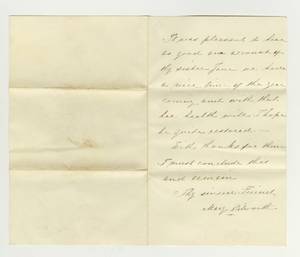 It was pleasant to hear
so good an account of
thy sister Jane we have
a nice time of the year
coming and with that
her health will I hope
be quite restored —
With thanks for thine
I must conclude this
and remain
Thy sincere Friend
Mary